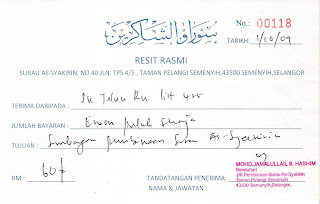 سوراو الشاكرين
No.: 00118
TARIKH: 1/10/09
RESIT RASMI
SURAU AS-SYAKIRIN, NO 40 JLN. TPS 4/5, TAMAN PELANGI SEMENYIH,43500 SEMENYIH,SELANGOR
TERIMA DARIPADA :
JUMLAH BAYARAN : Enam puluh sahaja
TUJUAN : Sumbangan pembinaan Surau As-Syakirin
RM : 60/-
TANDATANGAN PENERIMA
NAMA & JAWATAN :
MOHDJAMALULLAIL B. HASHIM
Bendahari
J/K Pembinaan Surau As-Syakirin
Taman Pelangi Semenyih
43500 Semenyih,Selangor.